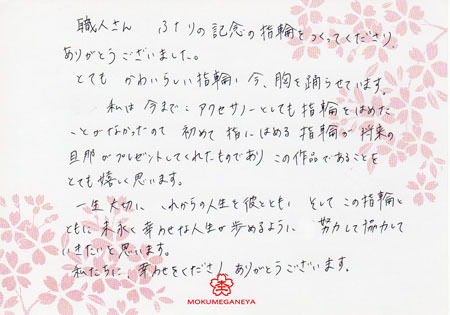 職人さん　ふたりの記念の指輪をつくってくださり、
ありがとうございました。
とても　かわいらしい指輪に今、胸を踊らせています。
私は今までに　アクセサリーとしても指輪をはめた
ことがなかったので　初めて指にはめる指輪が将来の
旦那がプレゼントしてくれたものであり　この作品であることを
とても嬉しく思います。
一生大切に　これからの人生を彼とともに　そして　この指輪と
ともに末永く幸せな人生が歩めるように　努力して協力して
いきたいと思います。
私たちに　幸せをくださり　ありがとうございます。
MOKUMEGANEYA